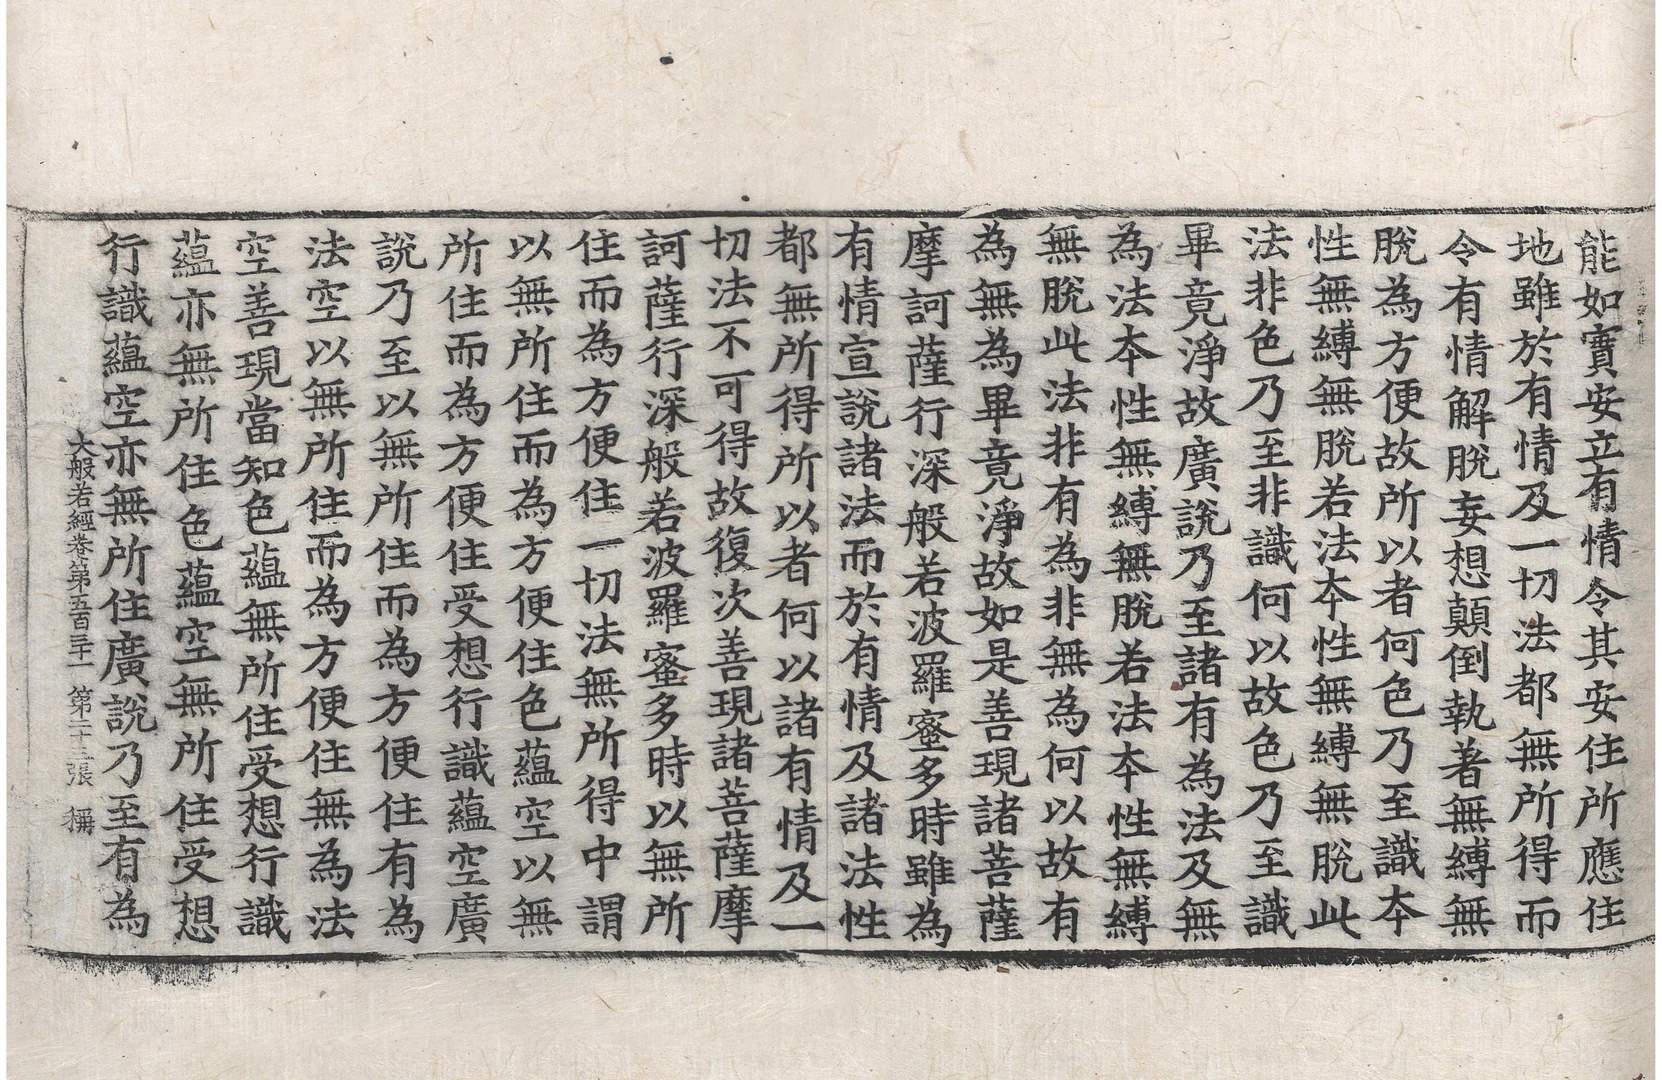 能如實安立有情令其安住所應住
地雖於有情及一切法都無所得而
令有情解脫妄想顛倒執著無縛無
脫為方便故所以者何色乃至識本
性無縛無脫若法本性無縛無脫此
法非色乃至非識何以故色乃至識
畢竟淨故廣說乃至諸有為法及無
為法本性無縛無脫若法本性無縛
無脫此法非有為非無為何以故有
為無為畢竟淨故如是善現諸菩薩
摩訶薩行深般若波羅蜜多時雖為
有情宣說諸法而於有情及諸法性
都無所得所以者何以諸有情及一
切法不可得故復次善現諸菩薩摩
訶薩行深般若波羅蜜多時以無所
住而為方便住一切法無所得中謂
以無所住而為方便住色蘊空以無
所住而為方便住受想行識蘊空廣
說乃至以無所住而為方便住有為
法空以無所住而為方便住無為法
空善現當知色蘊無所住受想行識
蘊亦無所住色蘊空無所住受想
行識蘊空亦無所住廣說乃至有為
大般若經卷第五百三十一 第二十三張